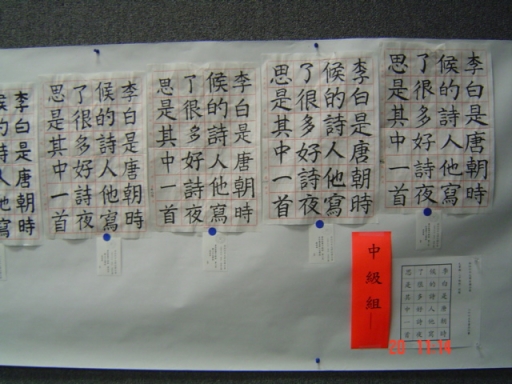 李白是唐朝時
候的詩人他寫
了很多好詩夜
思是其中一首
李白是唐朝時
候的詩人他寫
了很多好詩夜
思是其中一首
李白是唐朝時
候的詩人他寫
了很多好詩夜
思是其中一首
李白是唐朝時
候的詩人他寫
了很多好詩夜
思是其中一首
李白是唐朝時
候的詩人他寫
中級組一
李白是唐朝時
候的詩人他寫
了很多好詩夜
思是其中一首
20 11:14